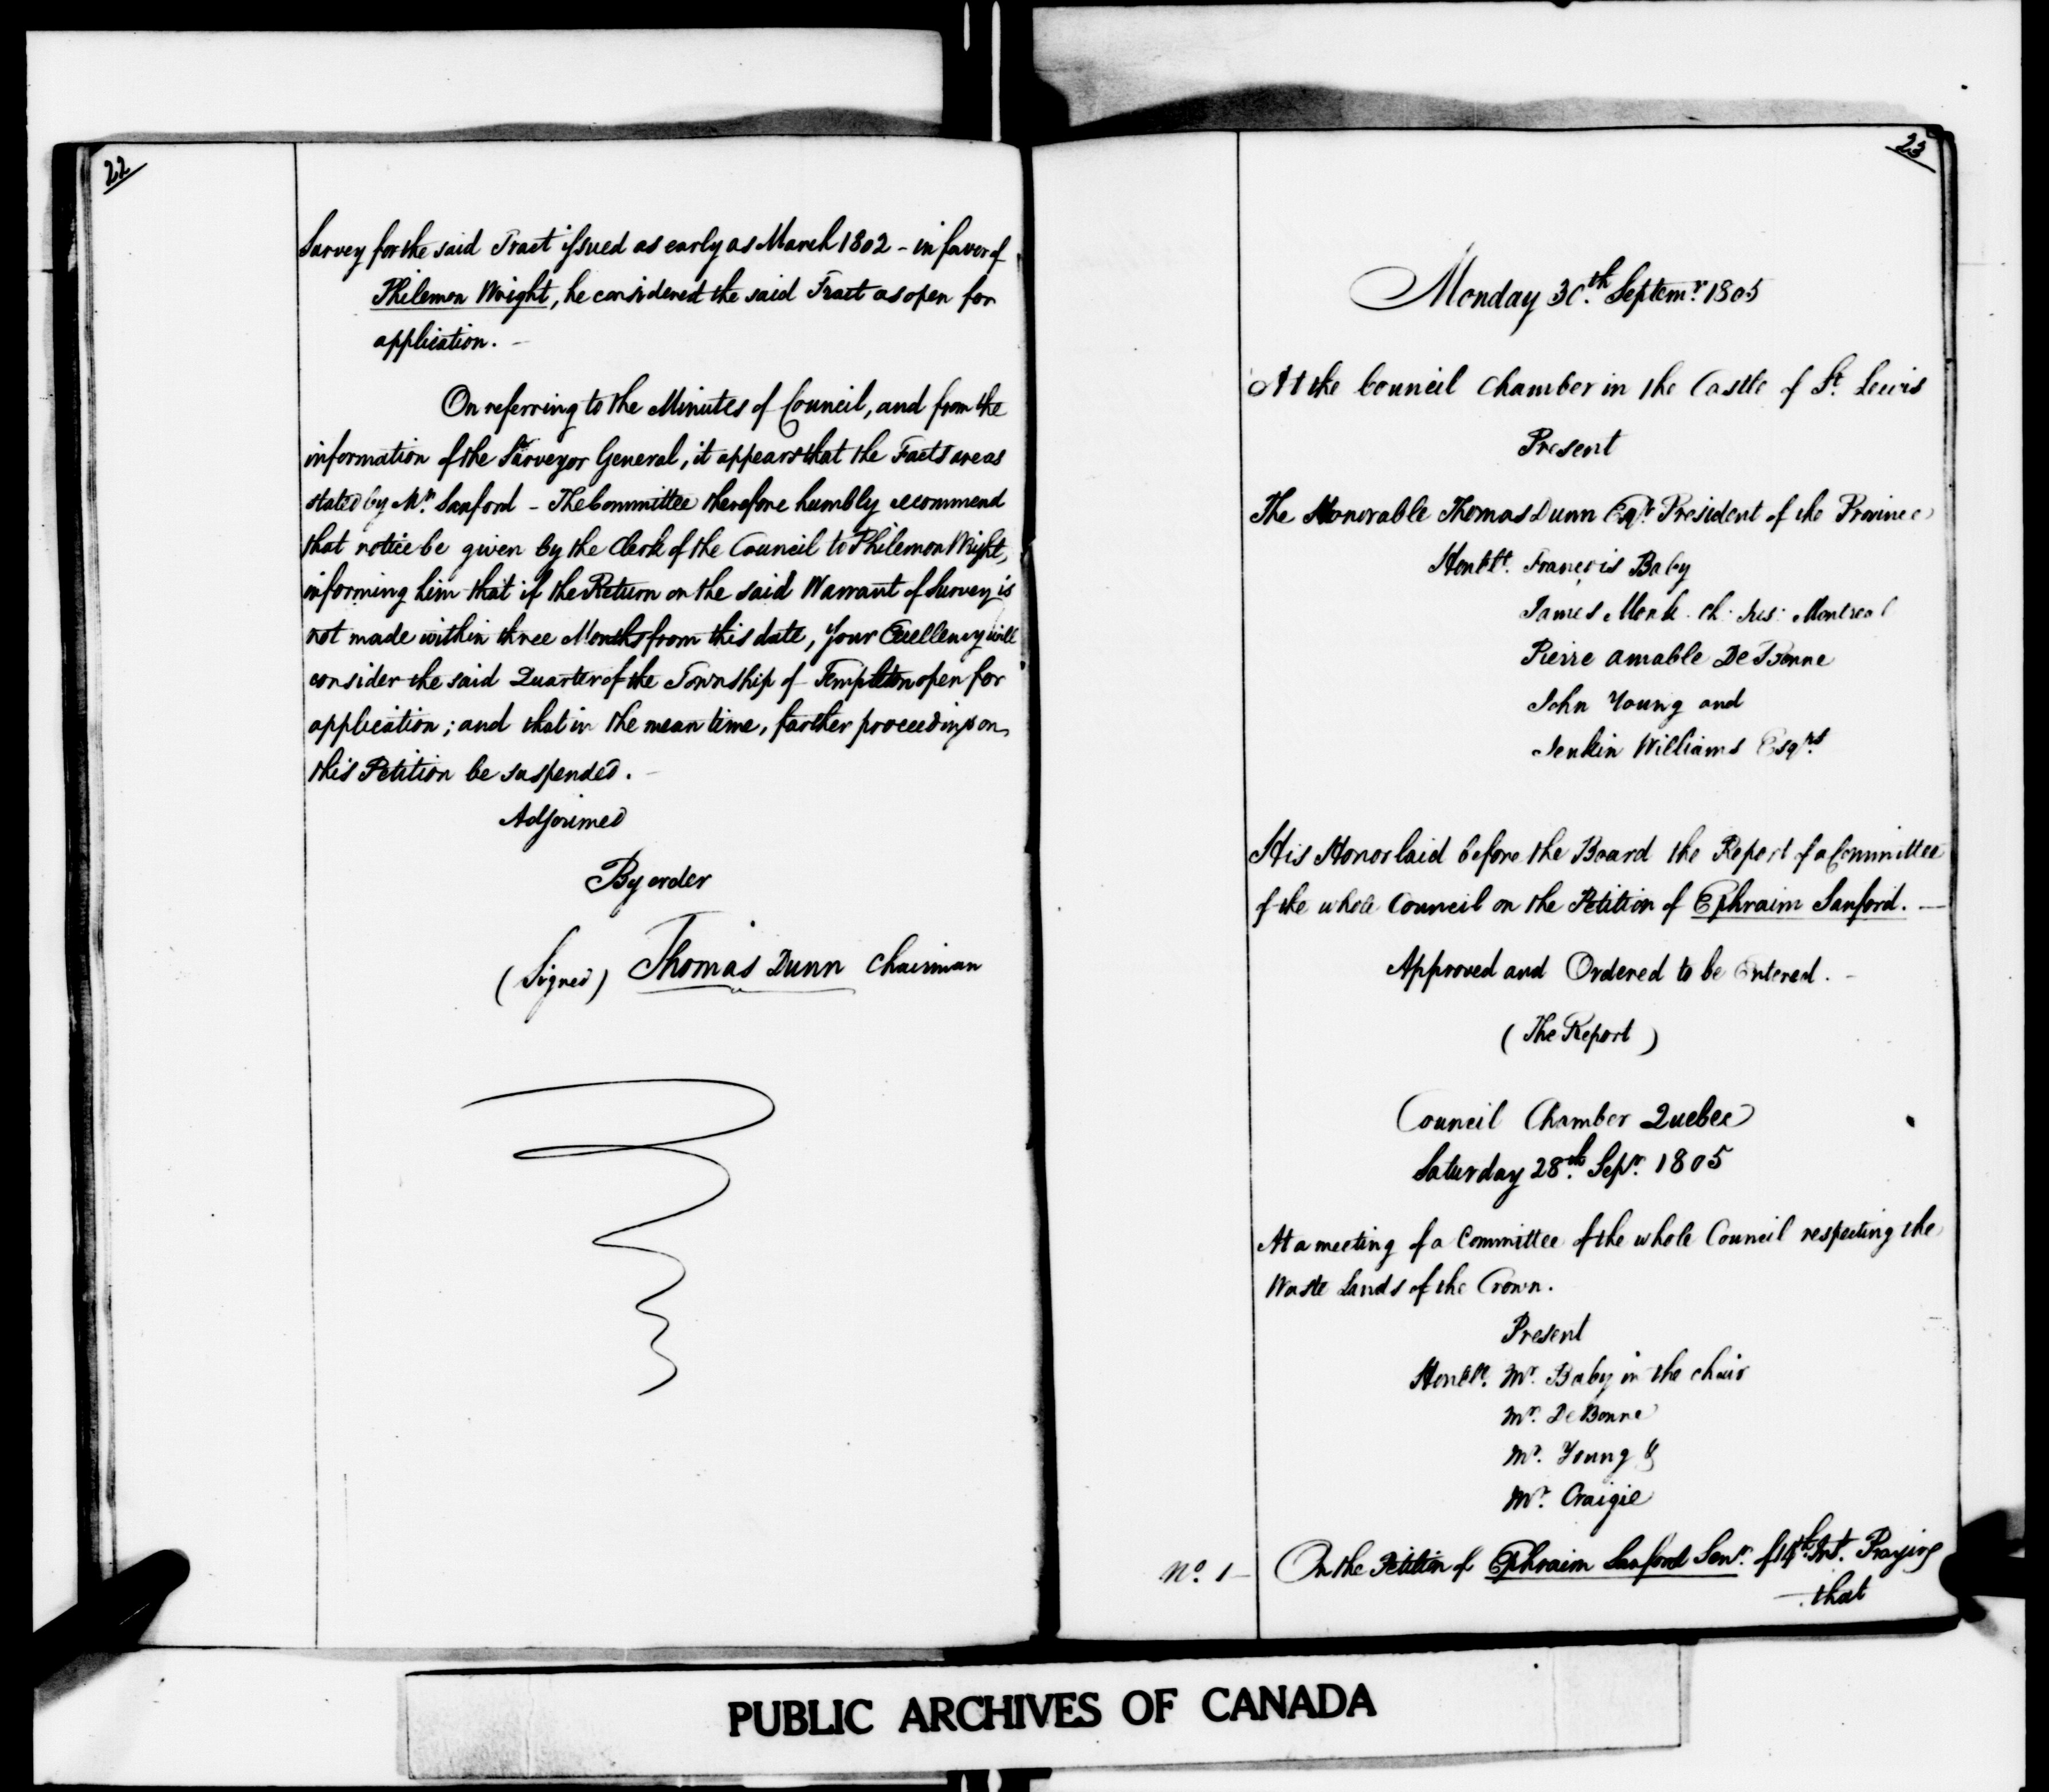 22
Survey for the said Tract issued as early as March 1802 - in favor of
Philemon Wright, he considered the said Tract as open for
application. -
On referring to the Minutes of Council, and from the
information of the Surveyor General, it appears that the Facts are as
stated by Mr. Sanford - The Committee therefore humbly recommend
that notice be given by the Clerk of the Council to Philemon Wright,
informing him that if the Return on the said Warrant of Survey is
not made within three Months from this date, Your Excellency will
consider the said Quarter of the Township of Templeton open for
application; and that in the mean time, farther proceedings on
this Petition be suspended. -
Adjourned
By order
(Signed) Thomas Dunn Chairman
23
Monday 30th. Septemr. 1805
At the Council Chamber in the Castle of St. Lewis
Present
The Honorable Thomas Dunn Esqr. President of the Province
Honble. Francois Baby
James Monk Ch: Jus: Montreal
Pierre Amable De Bonne
John Young and
Jenkin Williams Esqrs.
His Honor laid before the Board the Report of a Committee
of the whole Council on the Petition of Ephraim Sanford. -
Approved and Ordered to be Entered. -
(The Report)
Council Chamber Quebec
Saturday 28th. Sepr. 1805
At a meeting of a Committee of the whole Council respecting the
Waste Lands of the Crown.
Present
Honble. Mr. Baby in the chair
Mr. De Bonne
Mr. Young &
Mr. Craigie
No. 1 - On the Petition of Ephraim Sanford Senr. of 14th. Inst. Praying
that
PUBLIC ARCHIVES OF CANADA